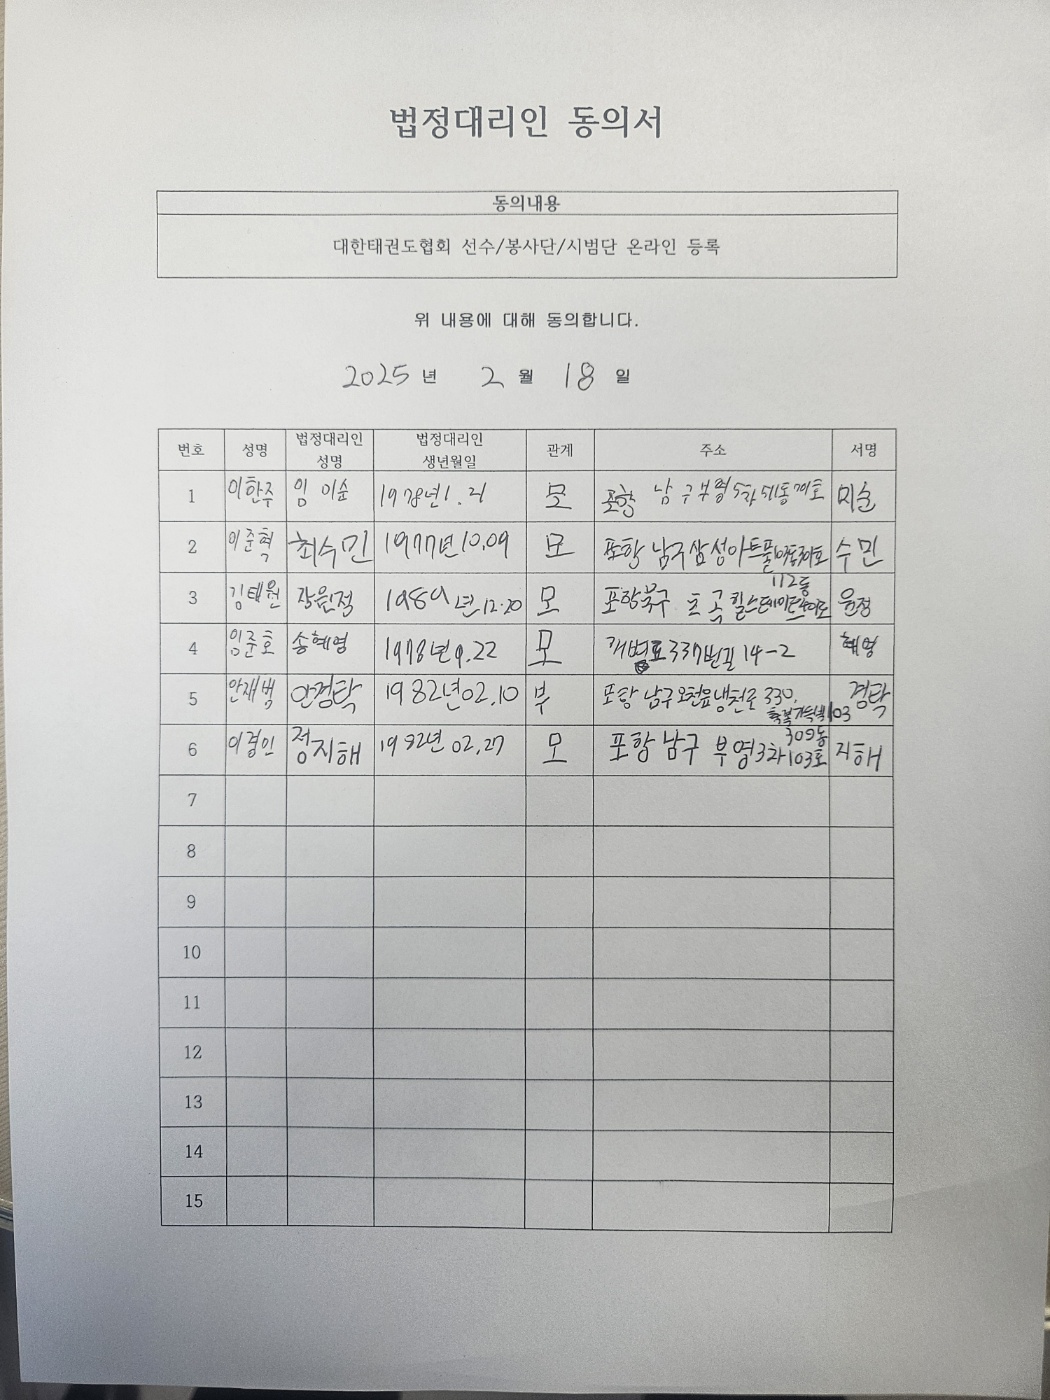 법정대리인 동의서
동의내용
대한태권도협회 선수/봉사단/시범단 온라인 등록
위 내용에 대해 동의합니다.
2025 년 2 월 18 일
번호 성명 법정대리인 성명 법정대리인 생년월일 관계 주소 서명
1 이한주 임 이순 1978년 1. 21 모 포항 남구 부영 5차
2 이준혁 최수민 1977년 10.09 모 포항 남구 삼성아트풀 수민
112동
3 김태원 년 12.20 모 포항북구 초곡 힐스테이트 윤정
4 임준호 송혜영 1978년 9.22 모 337번길 14-2 혜영
5 안재범 안경탁 1982년 02.10 부 포항 남구 오천읍 냉천로 330, 경탁
103
309동
6 이경인 정지해 1992년 02.27 모 포항 남구 부영3차 103호 지해
7
8
9
10
11
12
13
14
15